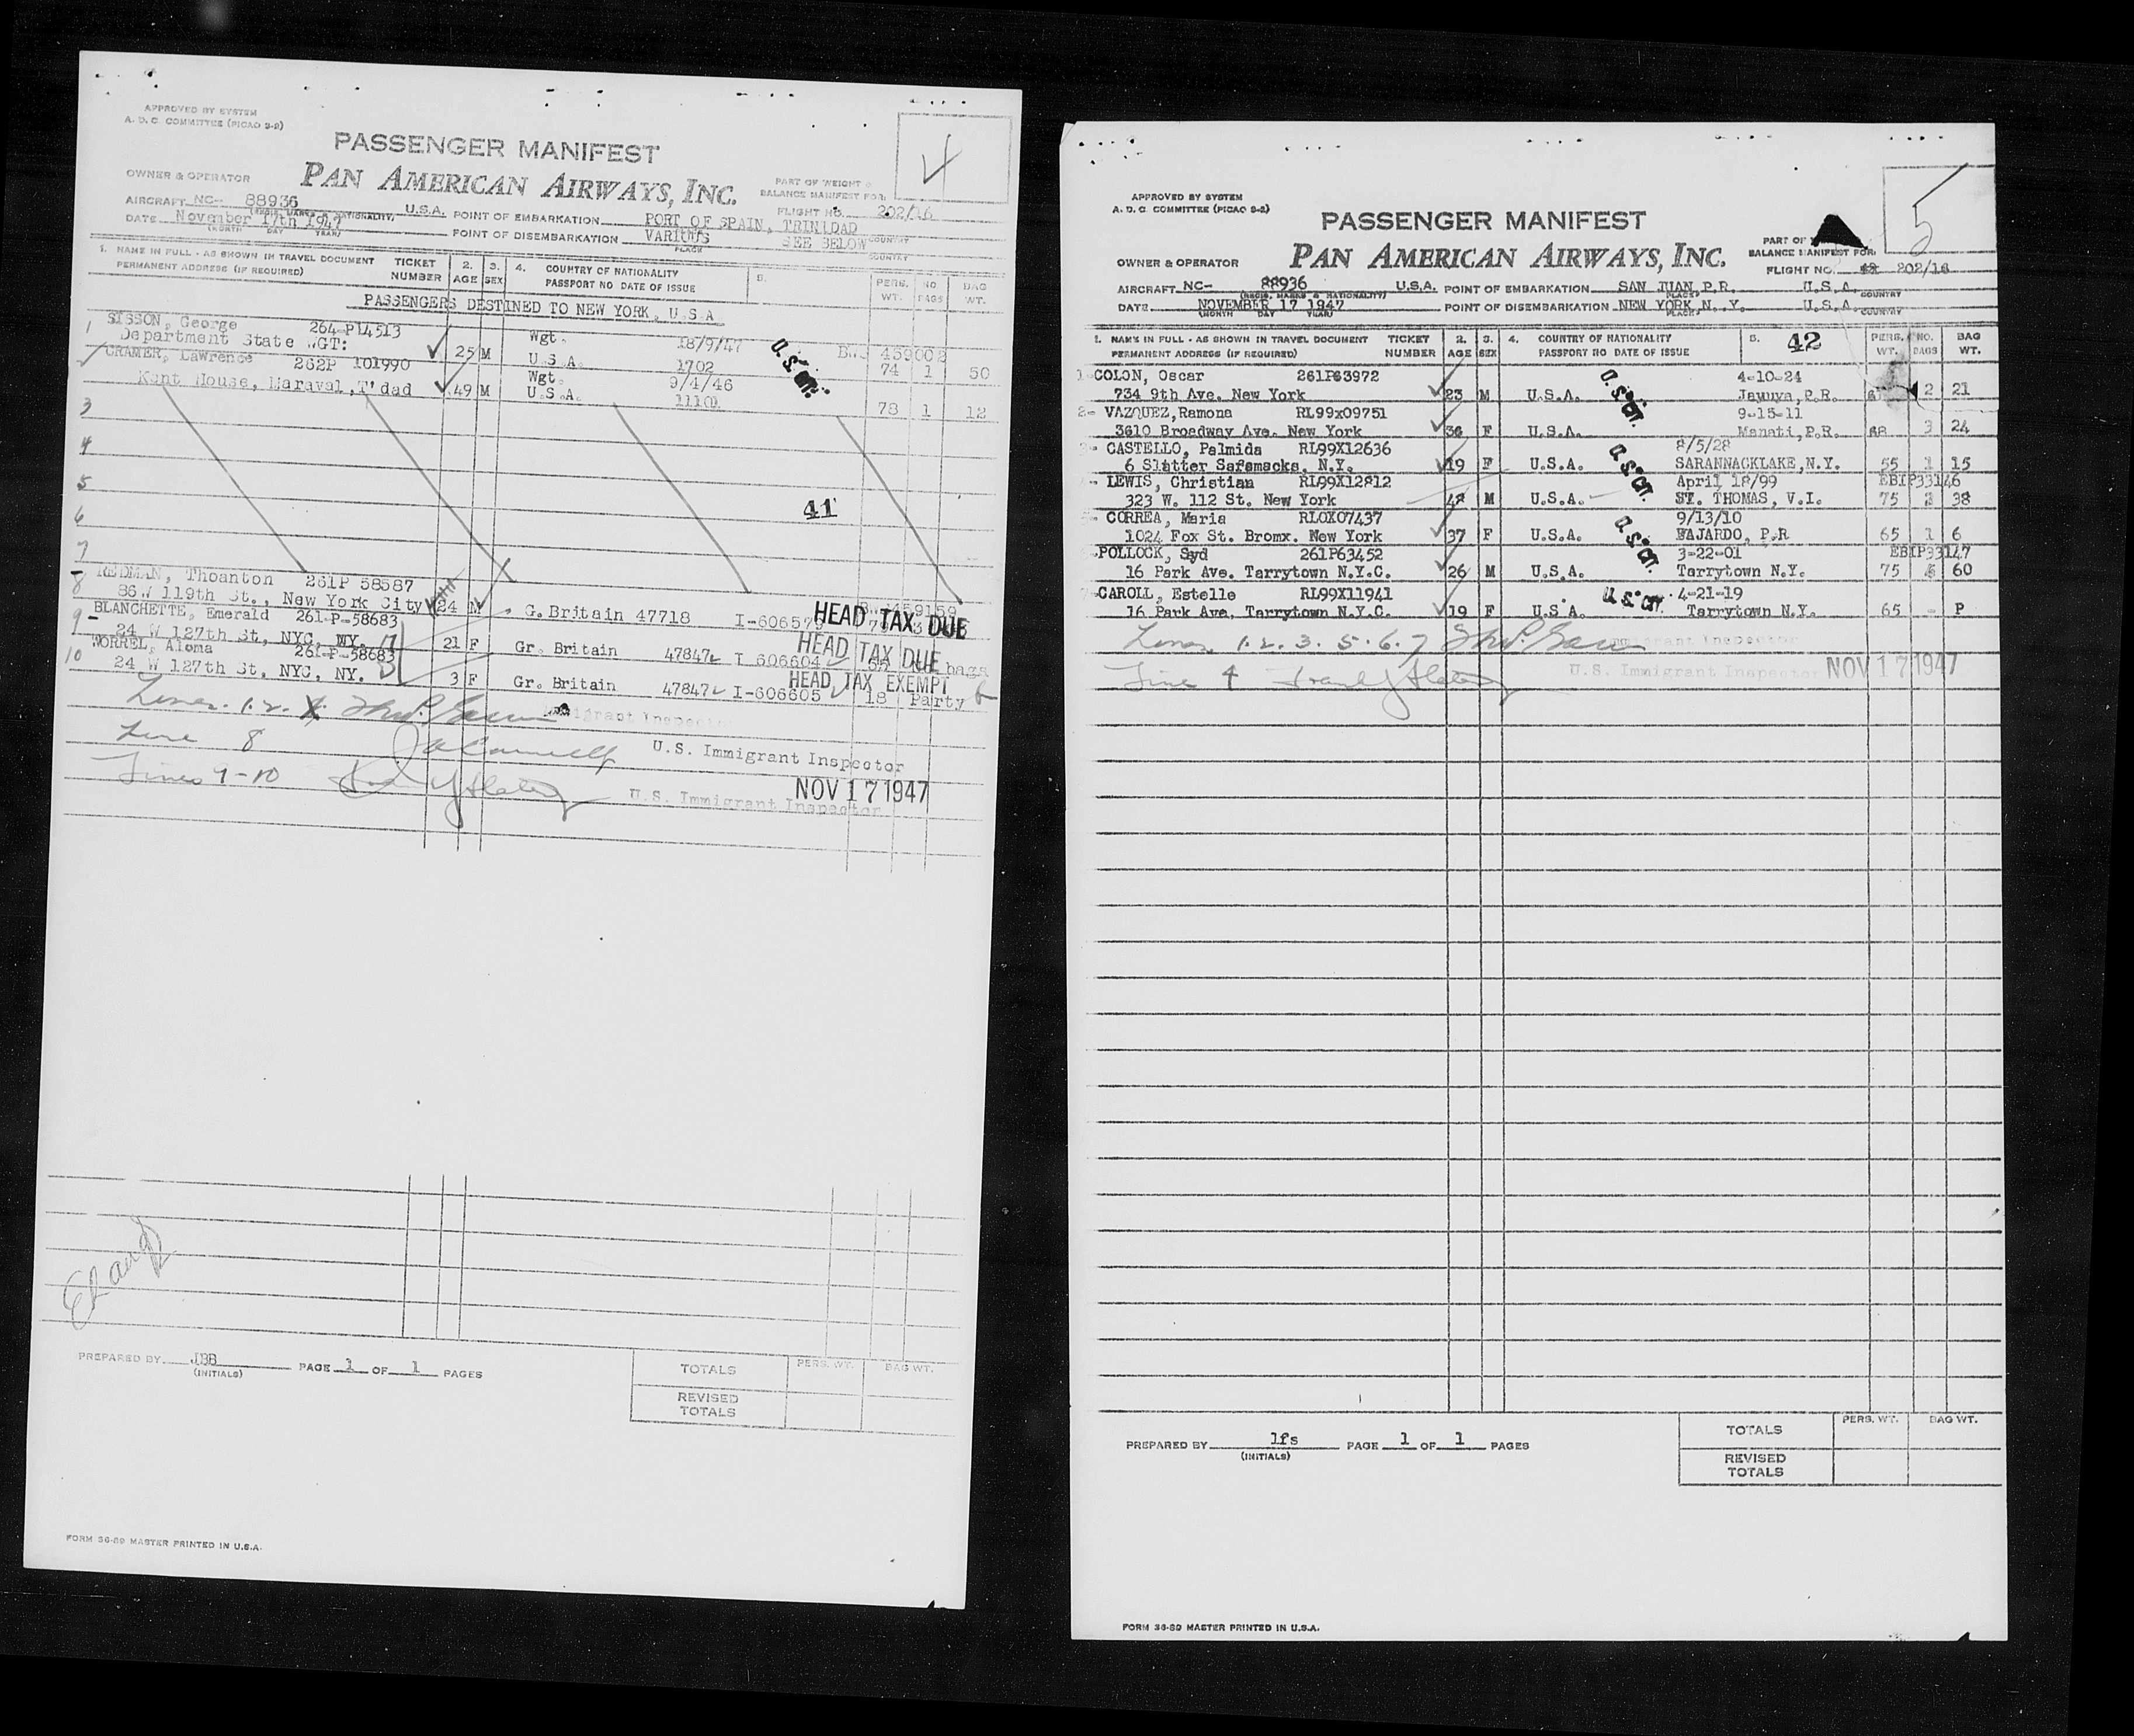 APPROVED BY SYSTEM
A. D. C. COMMITTEE (PICAO 9-2)
PASSENGER MANIFEST
OWNER & OPERATOR PAN AMERICAN AIRWAYS, INC. PART OF WEIGHT &
BALANCE MANIFEST FOR:
AIRCRAFT NC- 88936 U.S.A. POINT OF EMBARKATION PORT OF SPAIN, TRINIDAD FLIGHT NO. 202/16
(REGIS. MARKS & NATIONALITY)
DATE November 17th 1947 POINT OF DISEMBARKATION VARIOUS SEE BELOW COUNTRY
(MONTH DAY YEAR) PLACE COUNTRY
1. NAME IN FULL - AS SHOWN IN TRAVEL DOCUMENT TICKET 2. 3. 4. COUNTRY OF NATIONALITY 5. PERS. NO BAG
PERMANENT ADDRESS (IF REQUIRED) NUMBER AGE SEX PASSPORT NO DATE OF ISSUE WT. BAGS WT.
PASSENGERS DESTINED TO NEW YORK, U.S.A
1 SISSON, George 264-P14513 Wgt. 18/9/47 459002
Department State WGT: 25 M U.S.A. 1702 74 1 50
CRAMER, Lawrence 262P 101990 Wgt. 9/4/46 U.S. CIT.
Kent House, Maraval, T'dad 49 M U.S.A. 78 1 12
3
4
5
6 41
7
8 REDMAN, Thoanton 261P 58587
86W 119th St., New York City 24 M G.Britain 47718 HEAD TAX DUE
9- BLANCHETTE, Emerald 261-P-58683
24 W 127th St, NYC, NY. 21 F Gr. Britain 47847 I 606604 HEAD TAX DUE bags
10 WORREL, Aloma 261-P-58683
24 W 127th St, NYC, NY. 3 F Gr. Britain 47847 I-606605 HEAD TAX EXEMPT 18 Party
Lines. 1. 2. Immigrant Inspector
Line 8 U.S. Immigrant Inspector
Lines 9-10 U.S. Immigrant Inspector NOV 17 1947
PREPARED BY JBB PAGE 1 OF 1 PAGES
(INITIALS)
TOTALS PERS. WT. BAG WT.
REVISED
TOTALS
FORM 36-80 MASTER PRINTED IN U.S.A.
5
APPROVED BY SYSTEM
A. D. C. COMMITTEE (PICAO 9-2)
PASSENGER MANIFEST
PART OF
OWNER & OPERATOR PAN AMERICAN AIRWAYS, INC. BALANCE MANIFEST FOR:
FLIGHT NO. 202/16
AIRCRAFT NC- 88936 U.S.A. POINT OF EMBARKATION SAN JUAN P.R. U.S.A.
(REGIS. MARKS & NATIONALITY) PLACE COUNTRY
DATE NOVEMBER 17 1947 POINT OF DISEMBARKATION NEW YORK N. Y. U.S.A.
(MONTH DAY YEAR) PLACE COUNTRY
1. NAME IN FULL - AS SHOWN IN TRAVEL DOCUMENT TICKET 2. 3. 4. COUNTRY OF NATIONALITY 5. 42 PERS. NO. BAG
PERMANENT ADDRESS (IF REQUIRED) NUMBER AGE SEX PASSPORT NO DATE OF ISSUE WT. BAGS WT.
1 COLON, Oscar 261P63972 4-10-24
734 9th Ave. New York 23 M U.S.A. U.S. CIT. Jayuya, P.R. 2 21
2- VAZQUEZ, Ramona RL99x09751 9-15-11
3610 Broadway Ave. New York 36 F U.S.A. Manati, P.R. 68 3 24
CASTELLO, Palmida RL99X12636 8/5/28
6 Slatter Safamacks, N.Y. 19 F U.S.A. U.S. CIT. SARANNACKLAKE, N.Y. 55 1 15
LEWIS, Christian RL99X12812 April 18/99 EBIP33146
323 W. 112 St. New York 48 M U.S.A. ST. THOMAS, V.I. 75 2 38
CORREA, Maria RLOX07437 9/13/10
1024 Fox St. Bromx. New York 37 F U.S.A. U.S. CIT. FAJARDO, P.R 65 1 6
POLLOCK, Syd 261P63452 3-22-01 EBIP33147
16 Park Ave. Tarrytown N.Y.C. 26 M U.S.A. Tarrytown N.Y. 75 60
CAROLL, Estelle RL99X11941 4-21-19
16 Park Ave, Tarrytown N.Y.C. 19 F U.S.A. U.S. CIT. Tarrytown N.Y. 65 - P
Lines. 1. 2. 3. 5. 6. 7 Immigrant Inspector
Line 4 U.S. Immigrant Inspector NOV 17 1947
PREPARED BY lfs PAGE 1 OF 1 PAGES
(INITIALS)
TOTALS PERS. WT. BAG WT.
REVISED
TOTALS
FORM 36-80 MASTER PRINTED IN U.S.A.